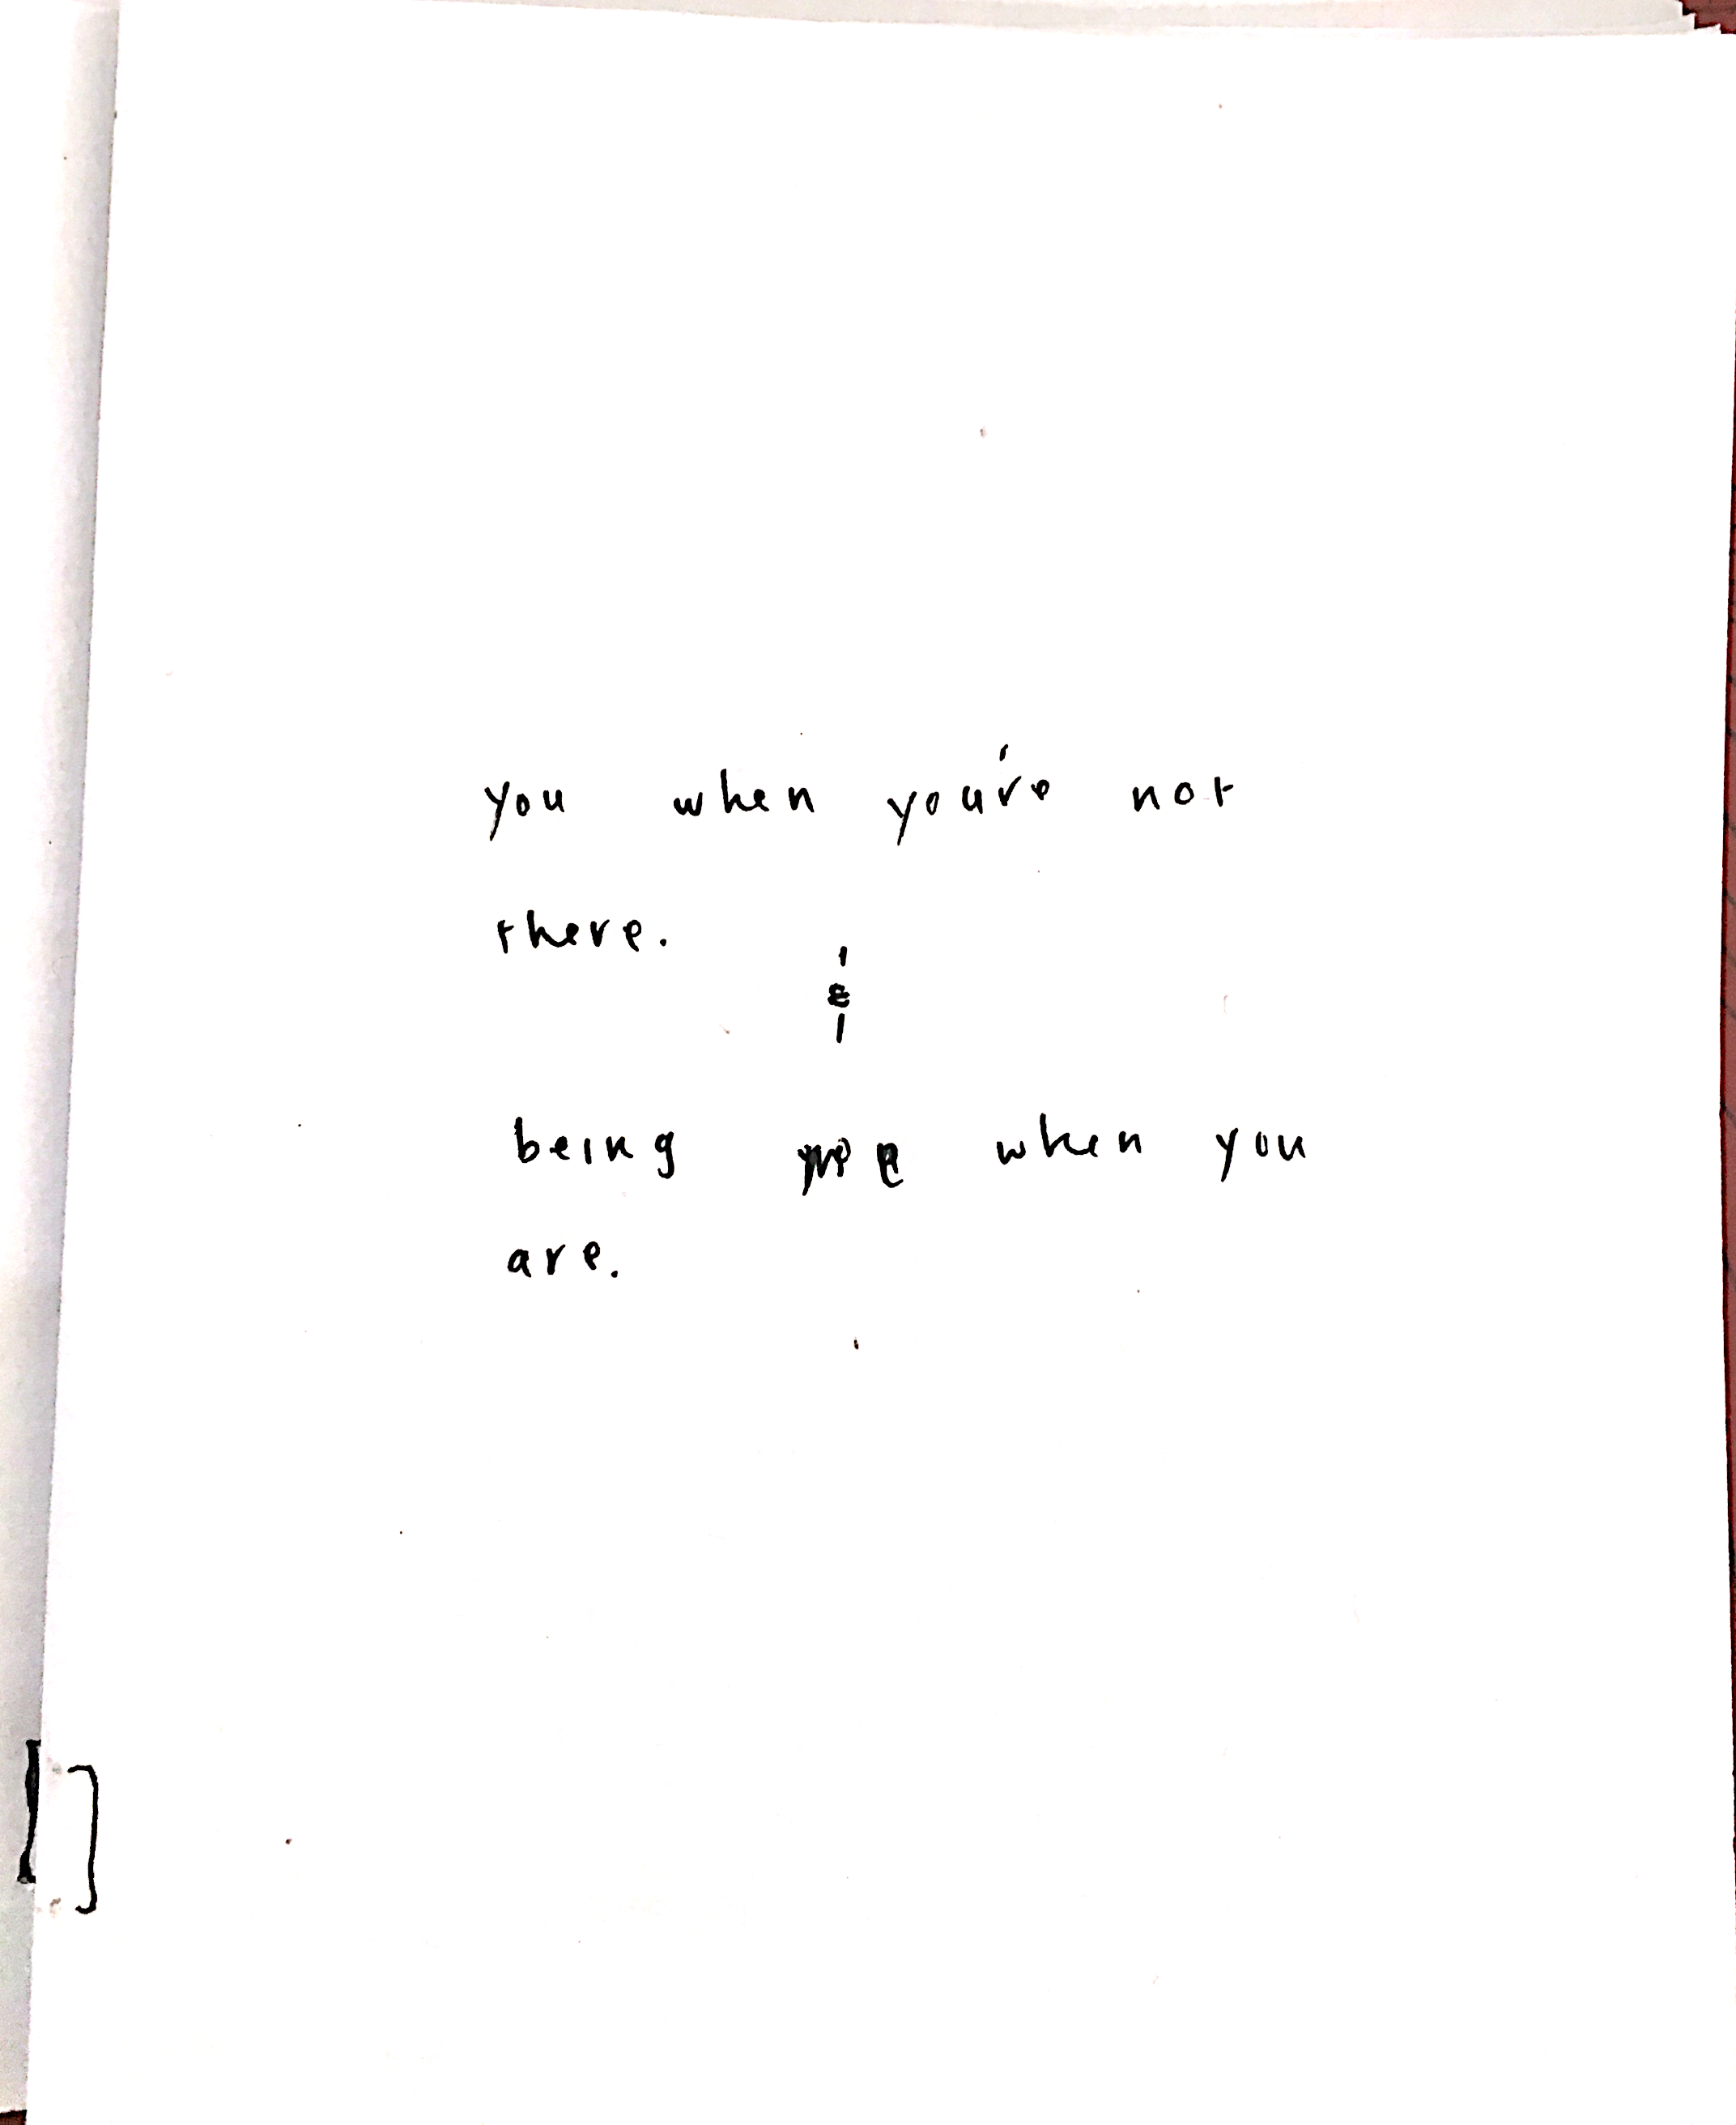 you when you're not
there.
&
being when you
are.